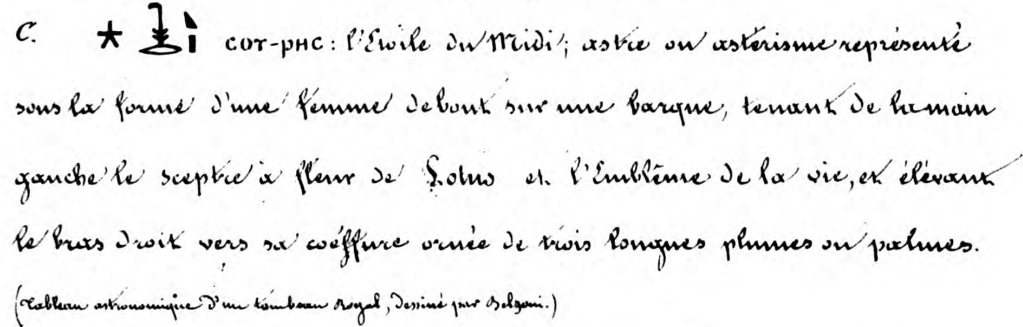 C. ★ ⲥⲟⲩ-ⲣⲏⲥ : l'Etoile du Midi ; astre ou astérisme représenté
sous la forme d'une femme debout sur une barque, tenant de la main
gauche le sceptre à fleur de Lotus et l'Emblême de la vie, et élévant
le bras droit vers sa coéffure ornée de trois longues plumes ou palmes.
(Tableau astronomique d'un tombeau Royal, dessiné par Belzoni.)